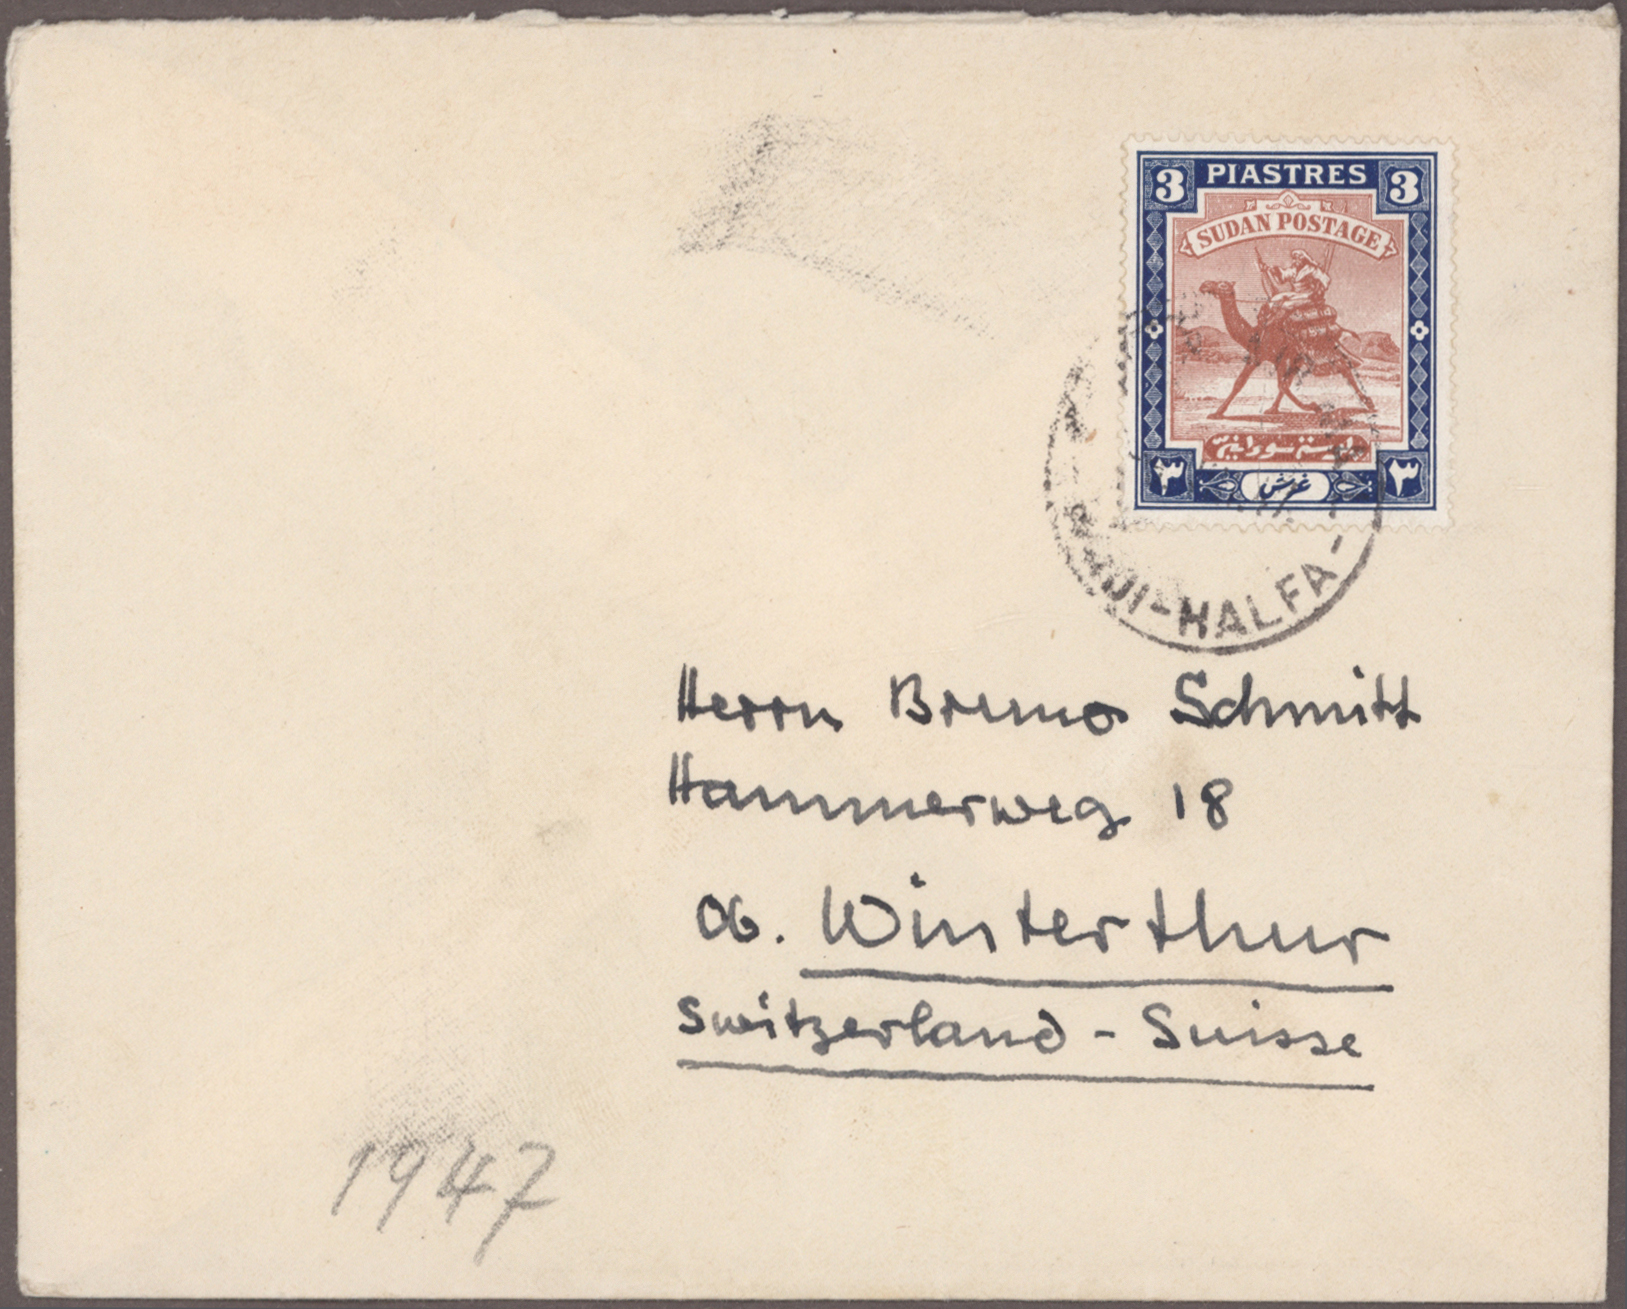 3 PIASTRES 3
SUDAN POSTAGE
بوستة سودانية
٣ غرش ٣
HALFA-
Herrn Bruno Schmitt
Hammerweg 18
Ob. Winterthur
Switzerland - Suisse
1947